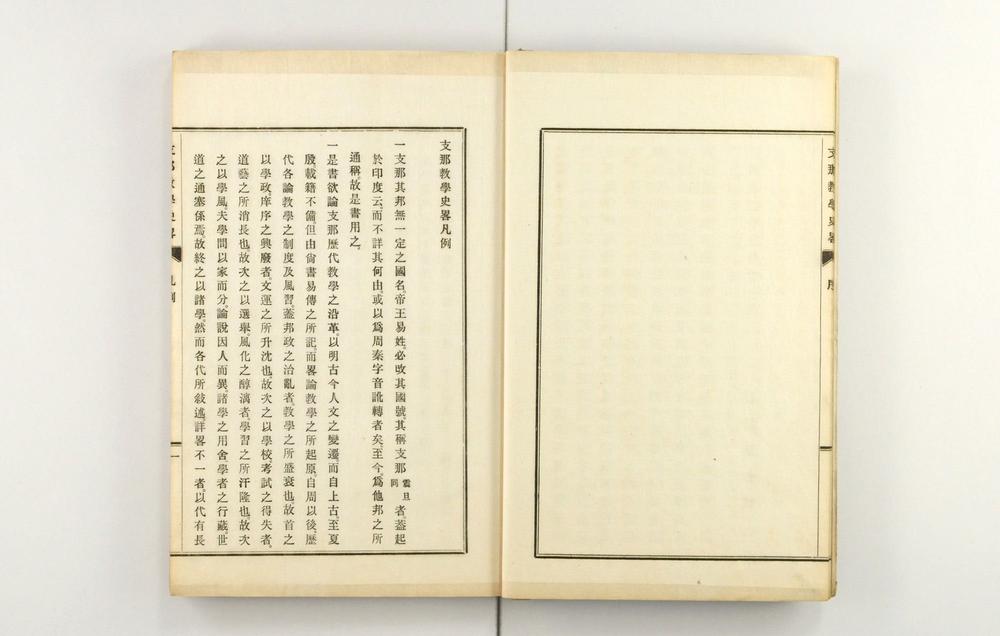 支那教學史畧
序
支那教學史畧凡例
一支那其邦無一定之國名。帝王易姓。必改其國號。其稱支那震旦同者。蓋起
於印度云。而不詳其何由。或以爲周秦字音訛轉者矣。至今。爲他邦之所
通稱。故是書用之。
一是書欲論支那歷代教學之沿革。以明古今人文之變遷。而自上古。至夏
殷。載籍不備。但由尙書易傳之所記。而畧論教學之所起原。自周以後。歷
代各論教學之制度及風習。蓋邦政之治亂者。教學之所盛衰也。故首之
以學政。庠序之興廢者。文運之所升沈也。故次之以學校。考試之得失者。
道藝之所消長也。故次之以選擧。風化之醇漓者。學習之所汙隆也。故次
之以學風。夫學問以家而分。論說因人而異。諸學之用舍。學者之行藏。世
道之通塞係焉。故終之以諸學。然而各代所敍述。詳畧不一者。以代有長
支那教學史畧
凡例
一